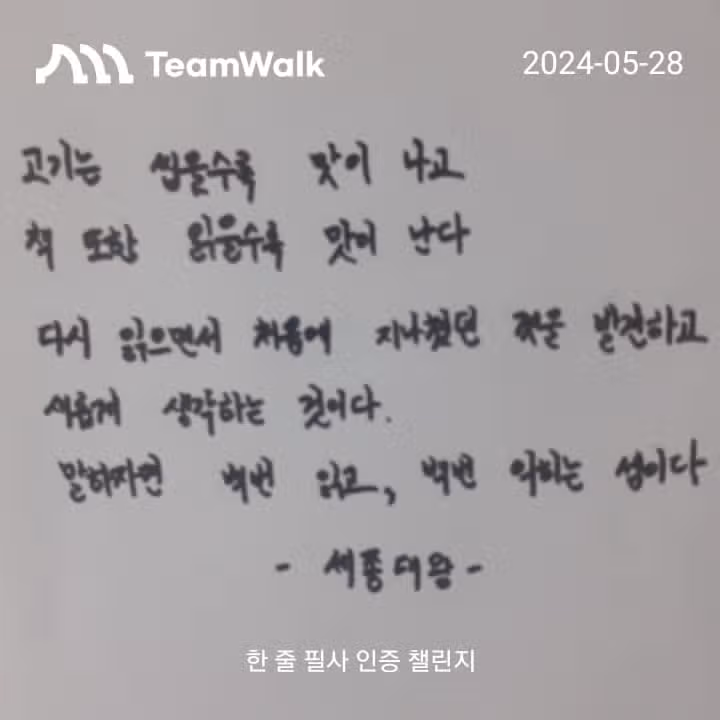 TeamWalk
2024-05-28
고기는 씹을수록 맛이 나고
책 또한 읽을수록 맛이 난다
다시 읽으면서 처음에 지나쳤던 것을 발견하고
새롭게 생각하는 것이다.
말하자면 백번 읽고, 백번 익히는 셈이다
- 세종대왕 -
한 줄 필사 인증 챌린지